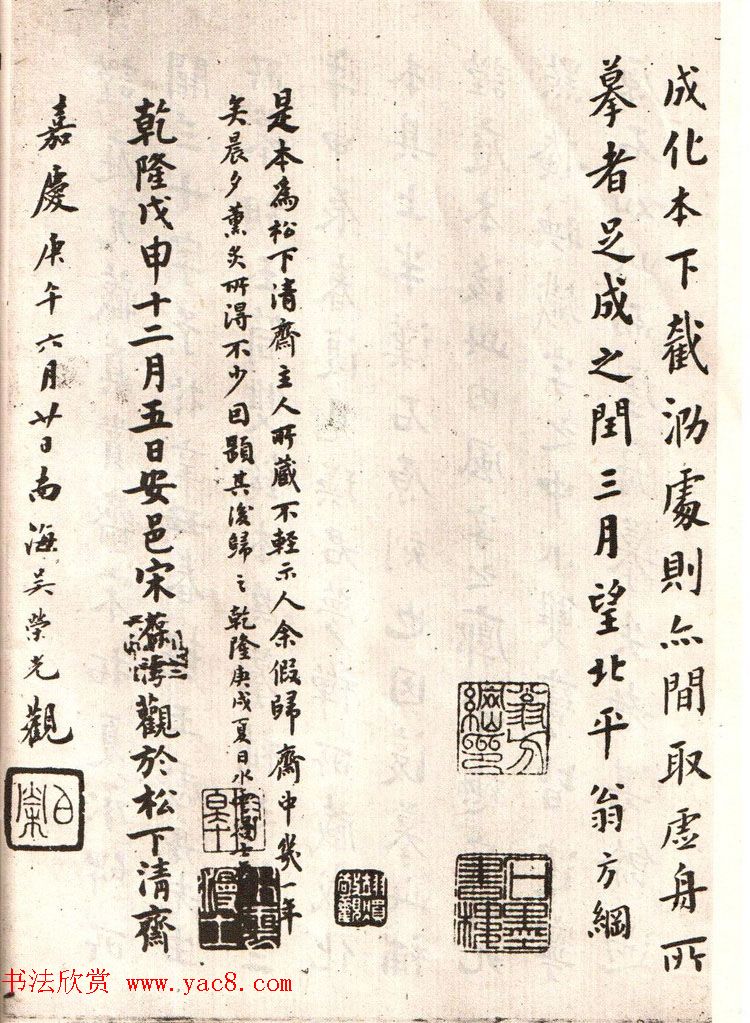 成化本下截泐處則亦間取虛舟所
摹者足成之閏三月望北平翁方綱
翁方綱印
石墨書樓
是本為松下清齋主人所藏不輕示人余假歸齋中幾一年
矣晨夕薰炙所得不少因題其後歸之乾隆庚戌夏日水雲漫士
水雲漫士
乾隆戊申十二月五日安邑宋葆淳觀於松下清齋
嘉慶庚午六月廿日南海吳榮光觀
白榮
书法欣赏 www.yac8.com